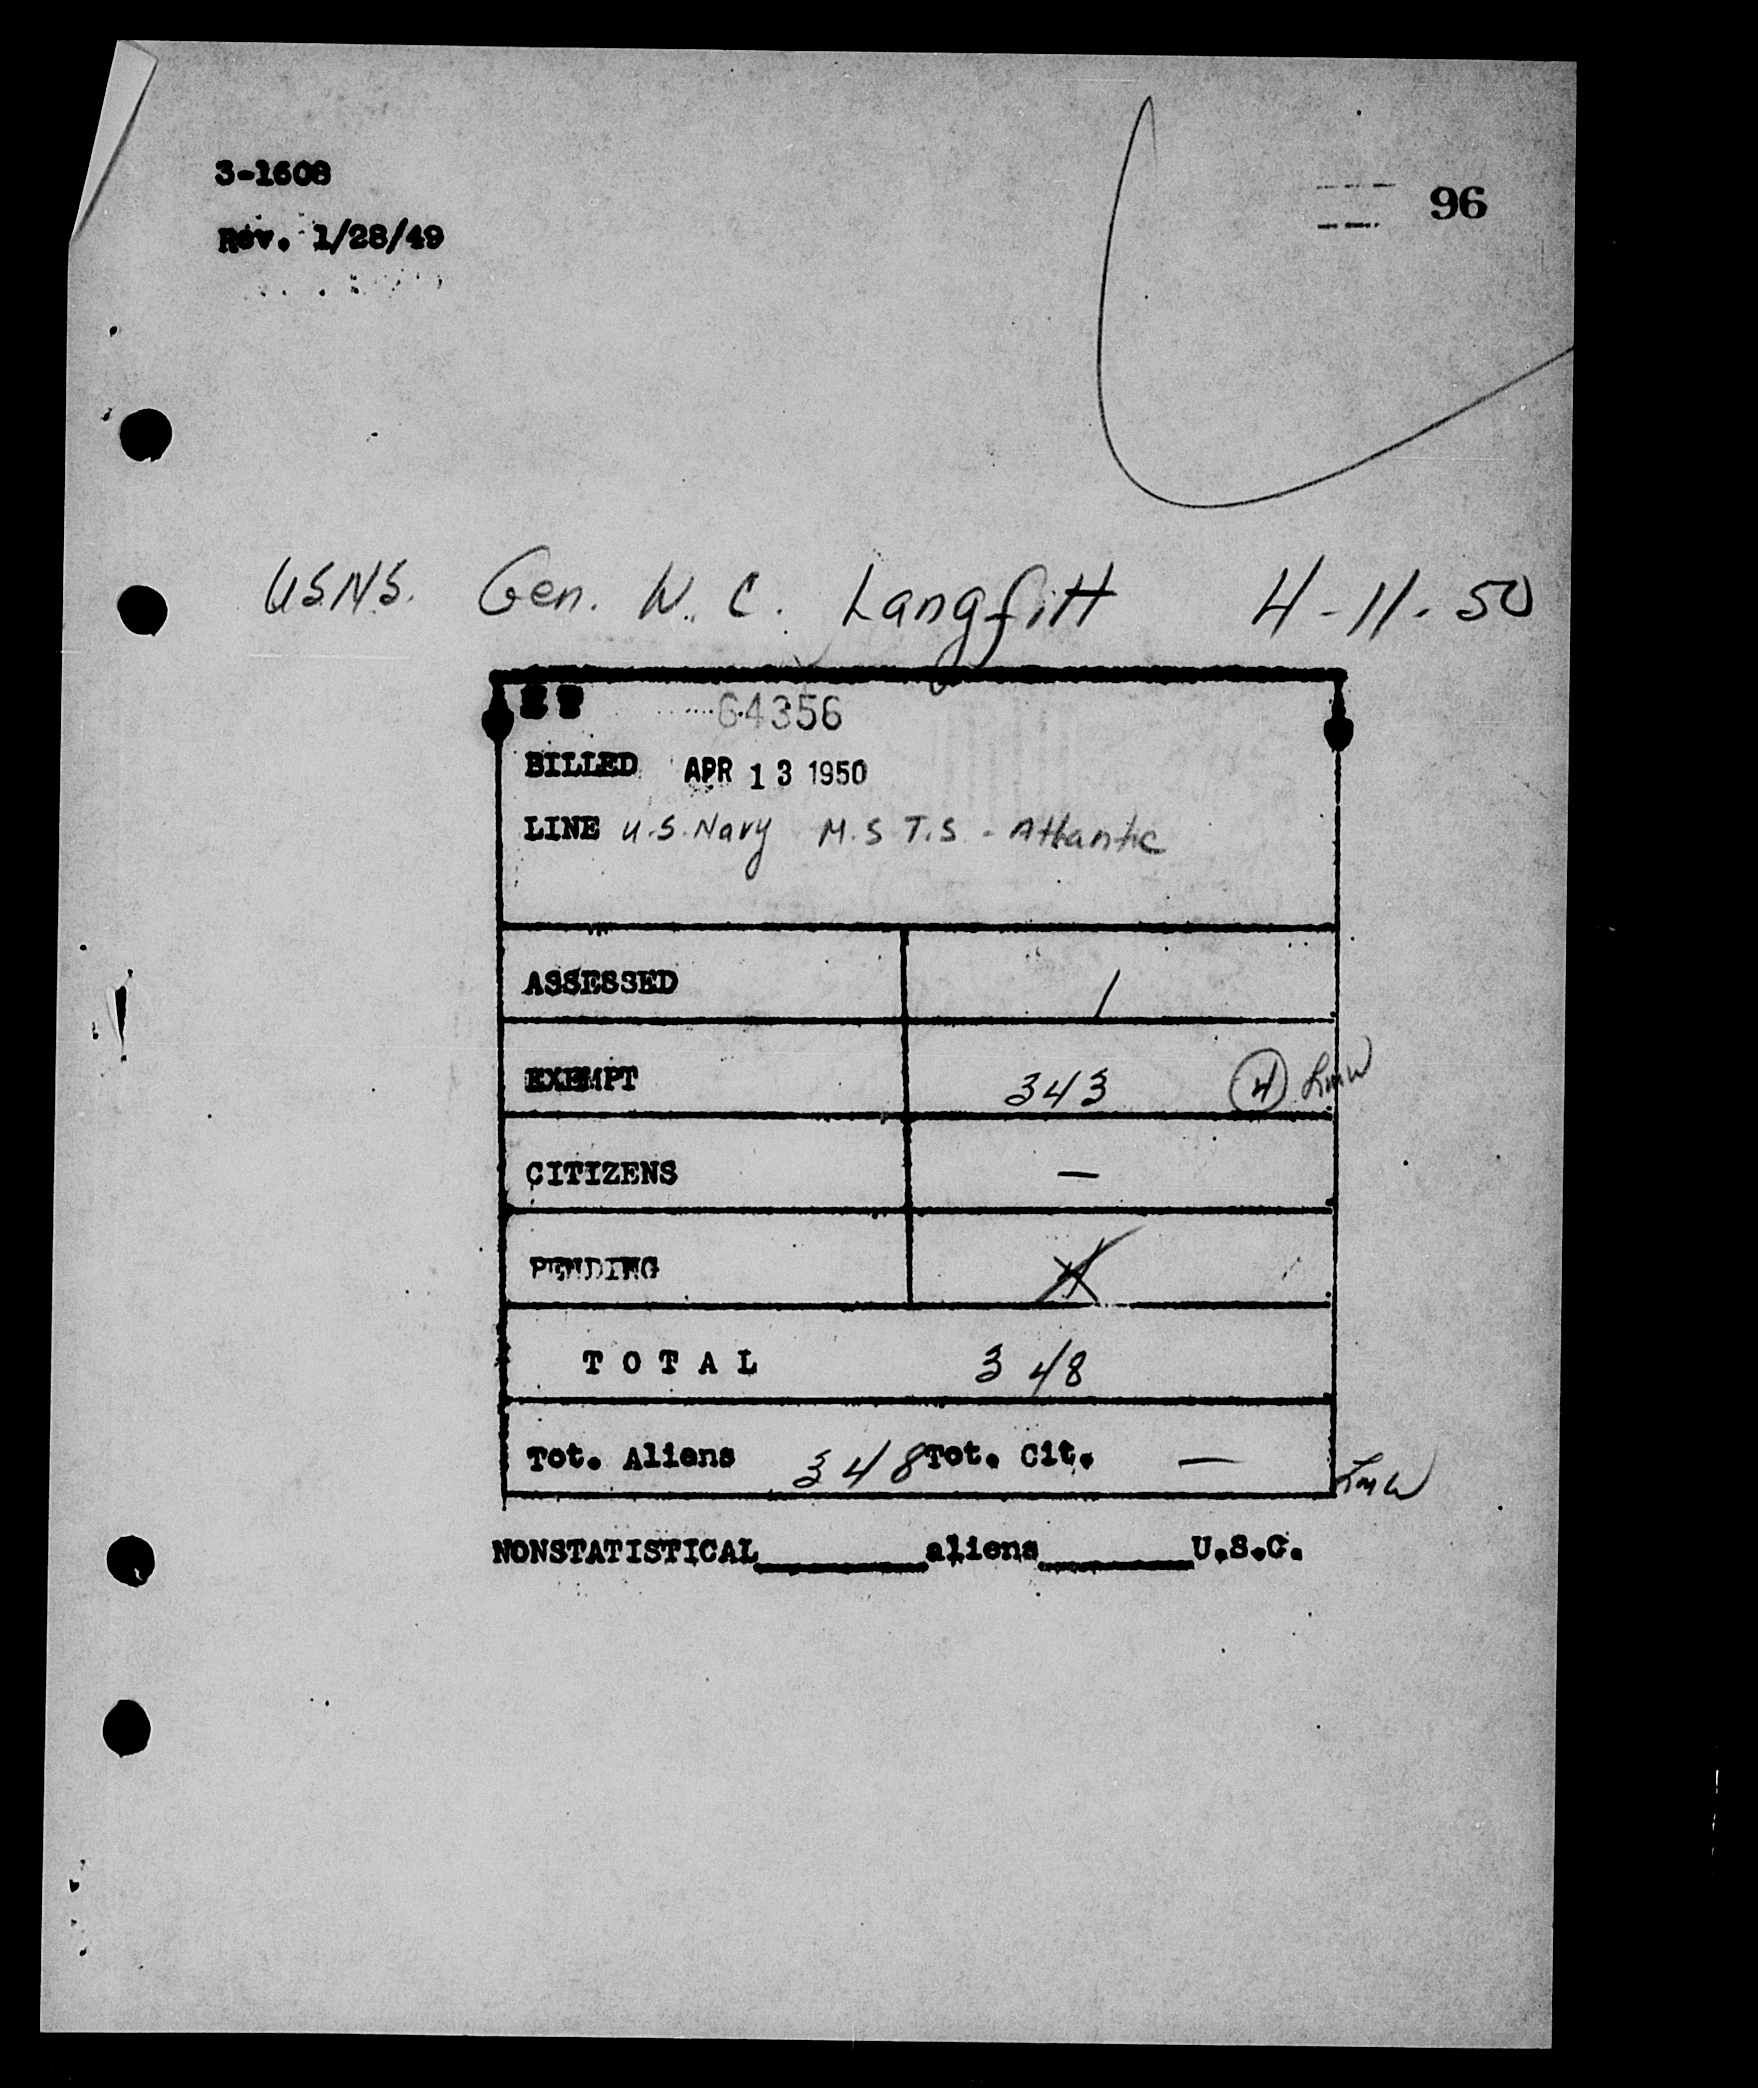 3-1608
96
Rev. 1/28/49
U.S.N.S. Gen. W. C. Langfitt 4-11-50
64356
BILLED APR 13 1950
LINE U.S. Navy M.S.T.S - Atlantic
ASSESSED 1
EXEMPT 343 4 LMW
CITIZENS —
PENDING 4
TOTAL 348
Tot. Aliens 348 Tot. Cit. — LMW
NONSTATISTICAL________aliens________U.S.C.